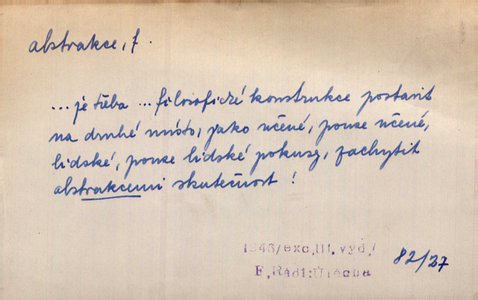 abstrakce, f.
... je třeba ... filosofické konstrukce postavit
na druhé místo, jako učené, pouze učené,
lidské, pouze lidské pokusy, zachytit
abstrakcemi skutečnost !
1946/exc, III. vyd./
E. Rádl: Útěcha
82/37